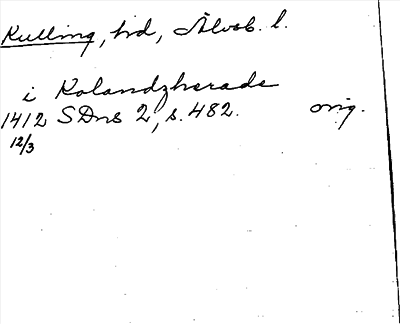 Kulling, hd, Älvsb. l.
i Kolandzherade
1412 SDns 2, s. 482. orig.
12/3